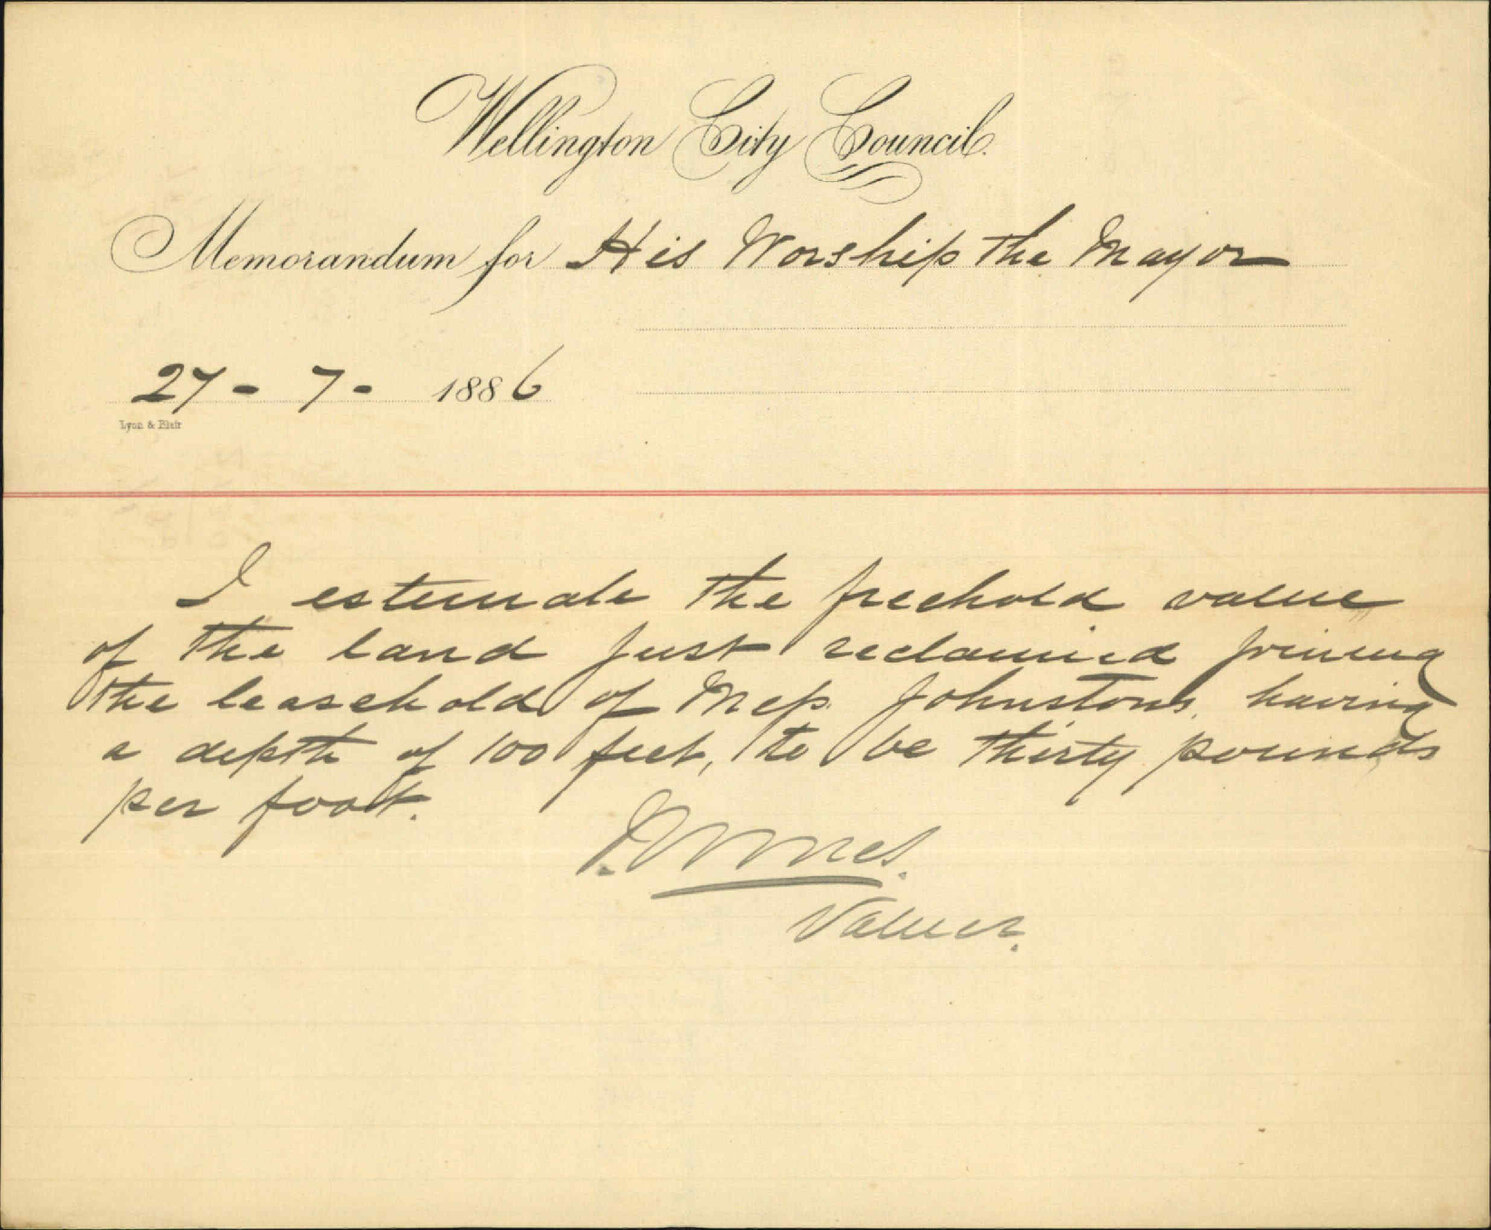 Wellington City Council.
Memorandum for His Worship the Mayor
27 - 7 - 1886
Lyon & Blair
I estimate the freehold value
of the land just reclaimed joining
the leasehold of Mess. Johnstons, having
a depth of 100 feet, to be thirty pounds
per foot.
Valuer.